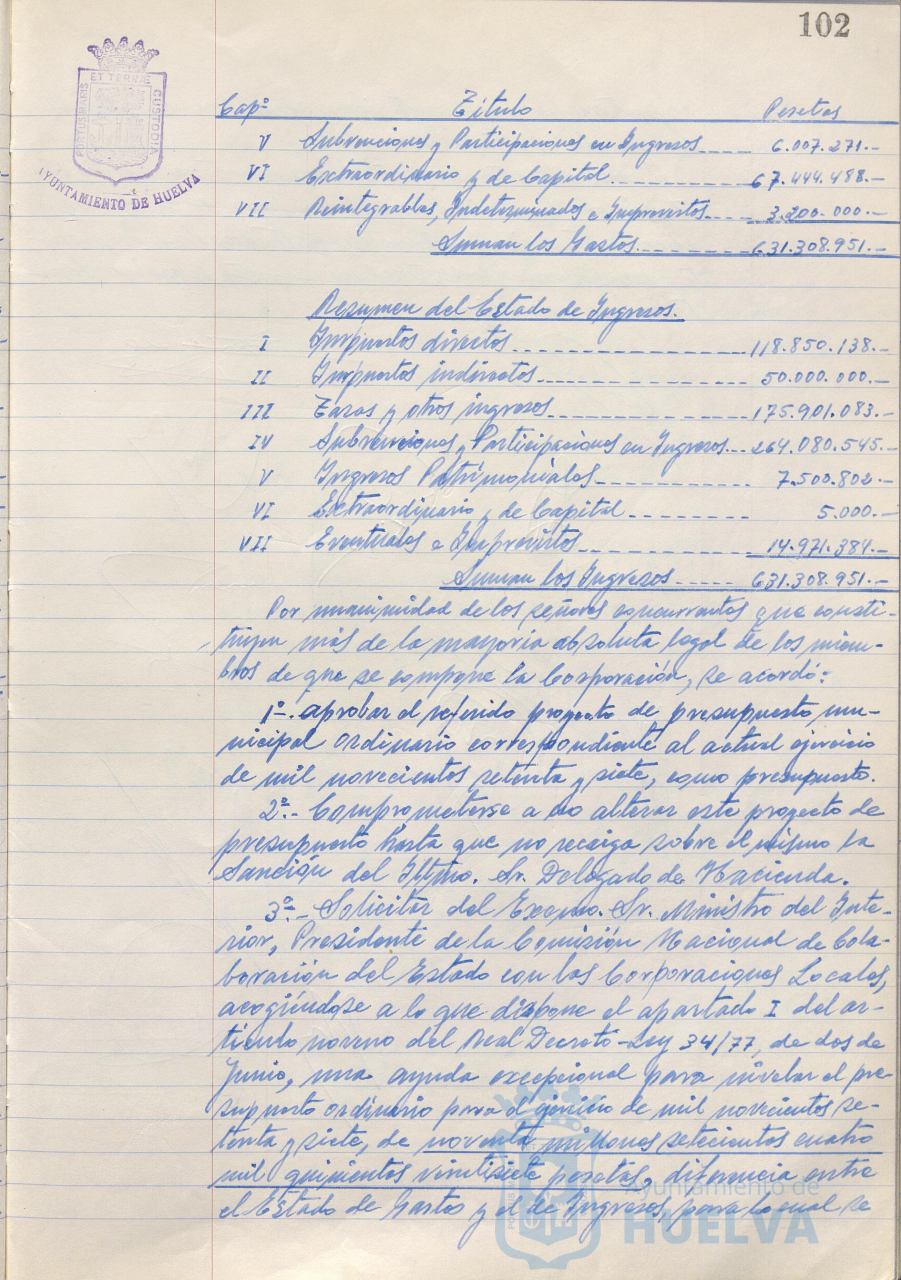 102
PORTUS MARIS
ET TERRÆ
CUSTODIA
AYUNTAMIENTO DE HUELVA
Capº Título Pesetas
V Subvenciones y Participaciones en Ingresos 6.007.271.-
VI Extraordinario y de Capital 67.444.488.-
VII Reintegrables, Indeterminados e Imprevistos 3.200.000.-
Suman los Gastos 631.308.951.-
Resumen del Estado de Ingresos.
I Impuestos directos 118.850.138.-
II Impuestos indirectos 50.000.000.-
III Tasas y otros ingresos 175.901.083.-
IV Subvenciones y Participaciones en Ingresos 264.080.545.-
V Ingresos Patrimoniales 7.500.802.-
VI Extraordinario y de Capital 5.000.-
VII Eventuales e Imprevistos 14.971.384.-
Suman los Ingresos 631.308.951.-
Por unanimidad de los señores concurrentes que consti-
tuyen más de la mayoria absoluta legal de los miem-
bros de que se compone la Corporación, se acordó:
1º.- aprobar el referido proyecto de presupuesto mu-
nicipal ordinario correspondiente al actual ejercicio
de mil novecientos setenta y siete, como presupuesto.
2º.- Comprometerse a no alterar este proyecto de
presupuesto hasta que no recaiga sobre el mismo la
Sanción del Iltmo. Sr. Delegado de Hacienda.
3º.- Solicitar del Excmo. Sr. Ministro del Inte-
rior, Presidente de la Comisión Nacional de Cola-
boración del Estado con las Corporaciones Locales,
acogiéndose a lo que dispone el apartado I del ar-
tículo noveno del Real Decreto-Ley 34/77, de dos de
Junio, una ayuda excepcional para nivelar el pre-
supuesto ordinario para el ejercicio de mil novecientos se-
tenta y siete, de noventa millones setecientos cuatro
mil quinientos veintisiete pesetas, diferencia entre
el Estado de Gastos y el de Ingresos, para lo cual se
Ayuntamiento de
HUELVA